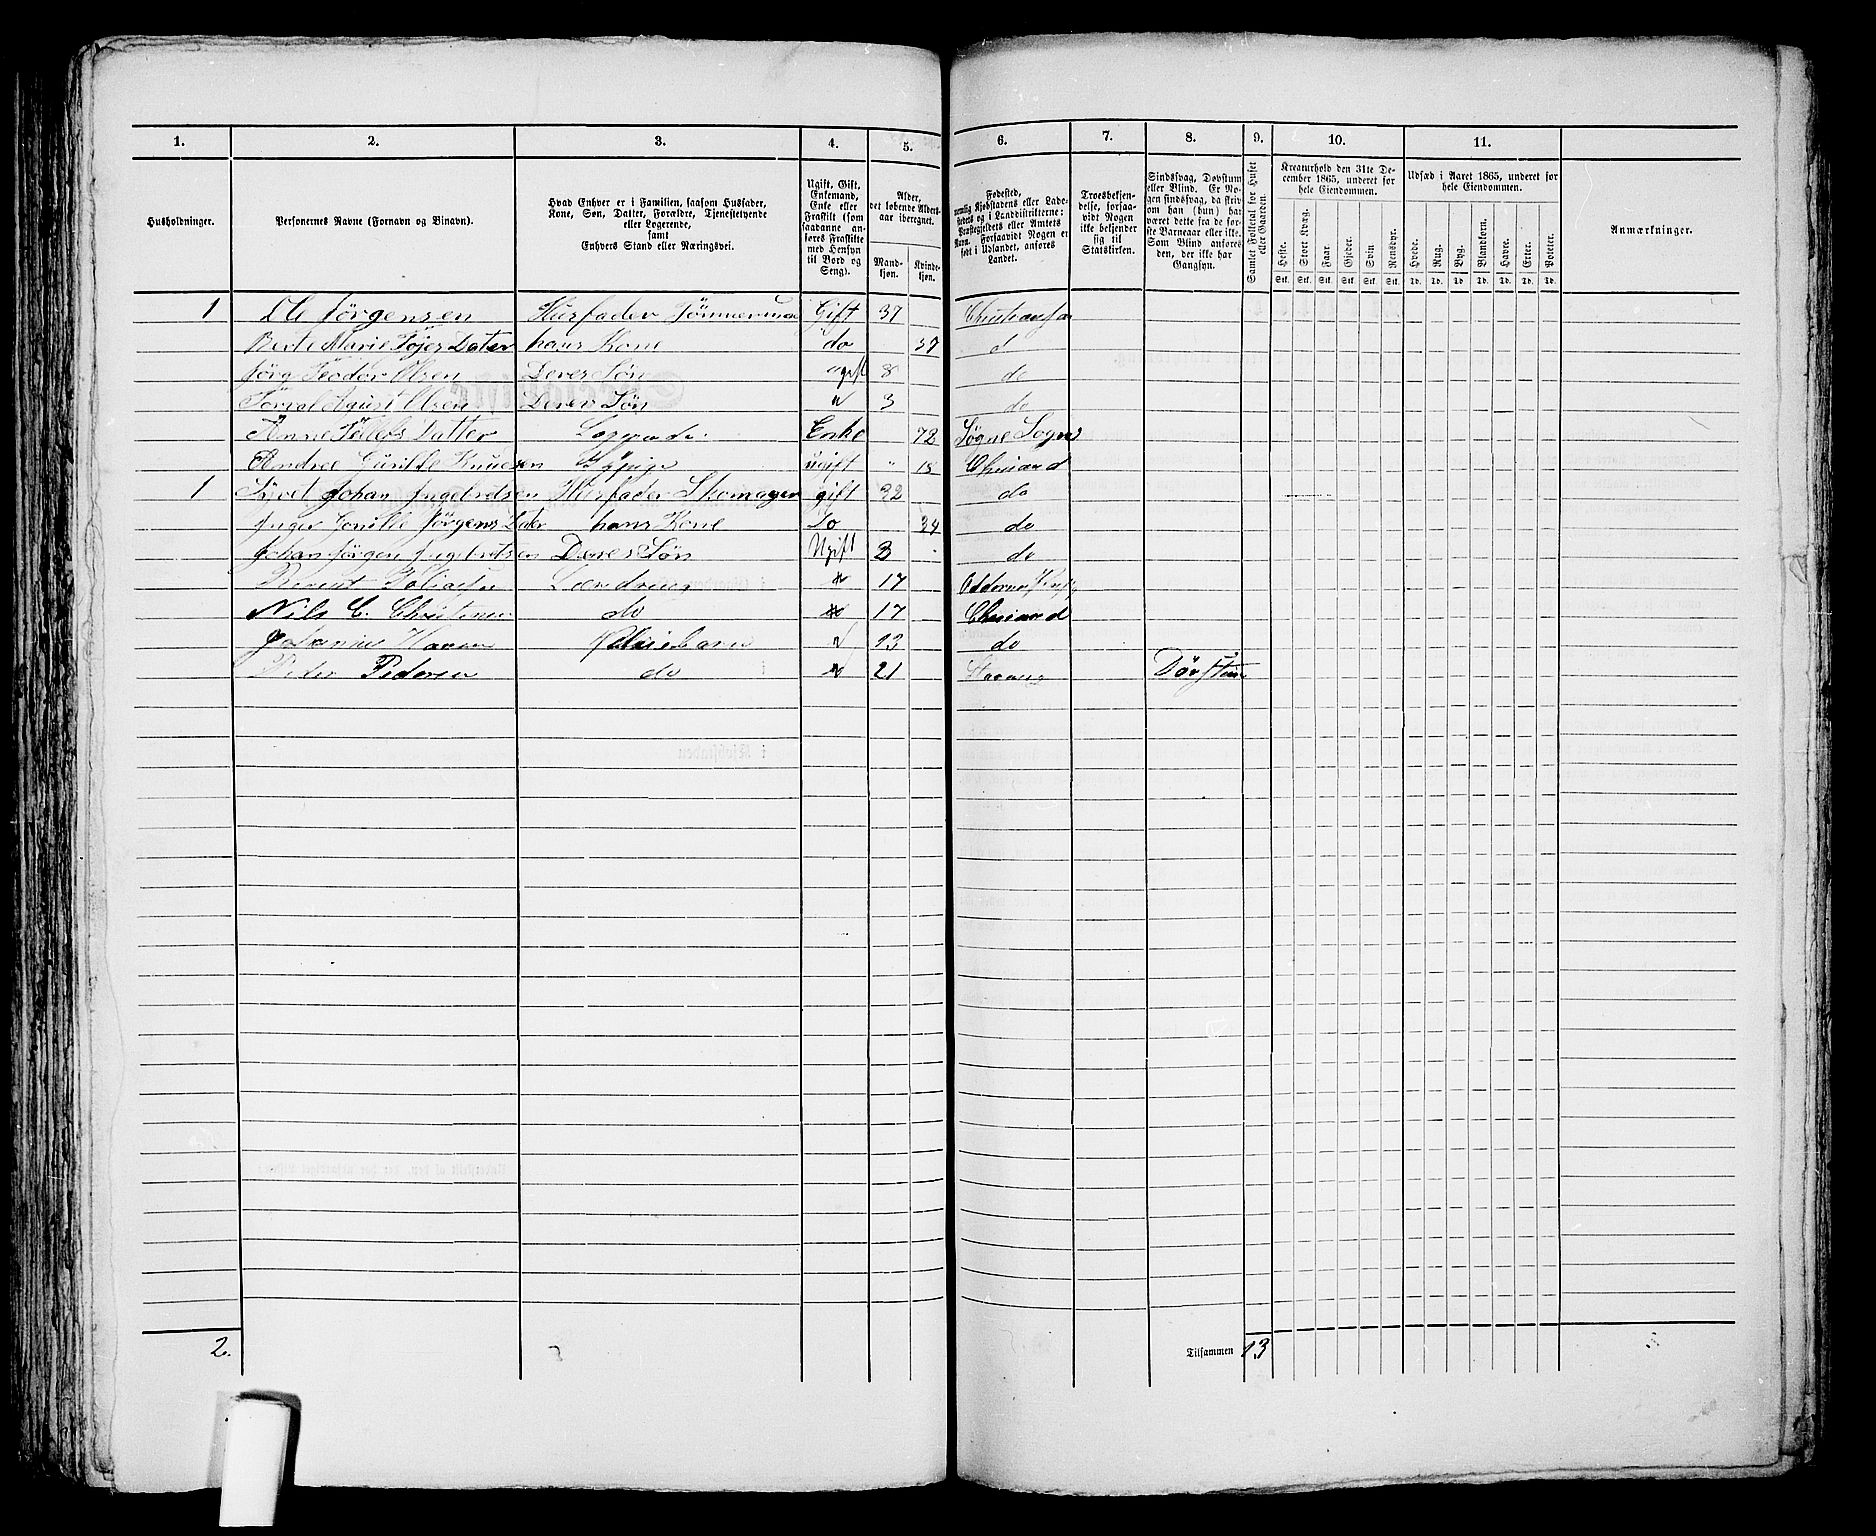 1. 2. 3. 4. 5. 6. 7. 8. 9. 10. 11.
Husholdninger.
Personernes Navne (Fornavn og Binavn).
Hvad Enhver er i Familien, saasom Husfader,
Kone, Søn, Datter, Forældre, Tjenestetyende
eller Logerende,
samt
Enhvers Stand eller Næringsvei.
Ugift, Gift,
Enkemand,
Enke eller
Fraskilt (som
saadanne an-
føres Fraskilte
med Hensyn
til Bord og
Seng).
Alder,
det løbende Alders-
aar iberegnet.
Mand-
kjøn.
Kvinde-
kjøn.
Fødested,
nemlig Kjøbstadens eller Lade-
stedets og i Landdistrikterne:
Præstegjeldets eller Amtets
Navn. Forsaavidt Nogen er
født i Udlandet, anføres
Landet.
Troesbekjen-
delse, forsaa-
vidt Nogen
ikke bekjender
sig til
Statskirken.
Sindssvag, Døvstum
eller Blind. Er No-
gen sindssvag, da skriv
om han (hun) har
været dette fra de før-
ste Barneaar eller ikke.
Som Blind anføres
den, der ikke har
Gangsyn.
Samlet Folketal for Huset
eller Gaarden.
Kreaturhold den 31te De-
cember 1865, underet for
hele Eiendommen.
Heste. Stort Kvæg. Faar. Gjeder. Sviin Rensdyr.
Stk. Stk. Stk. Stk. Stk. Stk.
Udsæd i Aaret 1865, underet for
hele Eiendommen.
Hvede. Rug. Byg. Blandkorn. Havre. Erter. Poteter.
Td. Td. Td. Td. Td. Td. Td.
Anmærkninger.
1 Ole Jörgensen Husfader Tömmerman Gift 37
Marie Dater hans Kone do 37 d
Olsen Deres Sön 8 do
Agust Olsen Deres Sön " 3 do
Anne Datter Enke 72 Søgne Sogn
Andree Knudsen ugift " 18
1 Johan Ingebretsen Husfader Skomager gift 32 do
Inger Jörgens Dater hans Kone Do 34 do
Johan Jörgen Ingebretsen Deres Sön Ugift 3 do
" 17
Nils C. do " 17
" 13 do
Peder Pedersen do " 21
2. Tilsammen 13